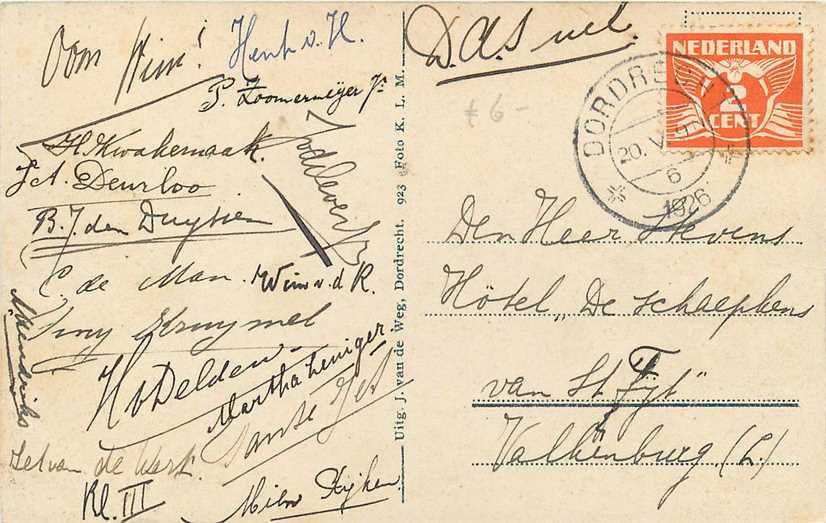 Oom Wim!
Henk v. H.
P. Zoomermeijer Jr
H. Kwakernaak.
J.A. Deurloo
B.J. den Duytsen
C de Man. Wim v. d R.
Siny Kruymel
H v Delden
Martha Leniger
M. Hendriks
Jet van de Werk.
Tante Jet
Kl. III
Uitg. J. van de Weg, Dordrecht. 923 Foto K. L. M.
D.A.S uel.
£ 6 -
NEDERLAND
2
CENT
DORDRECHT
20. V
6
1926
Den Heer Stevens
Hôtel "De Schaepkens
van St Fijt"
Valkenburg (L.)